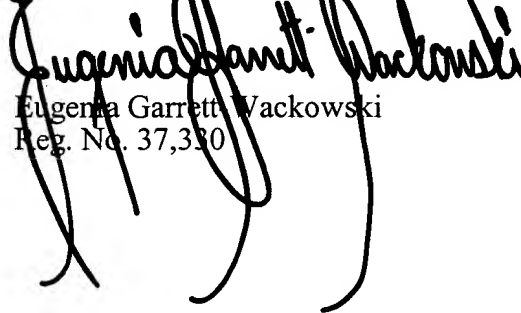 Eugenia Garrett Wackowski
Eugenia Garrett Wackowski
Reg. No. 37,330